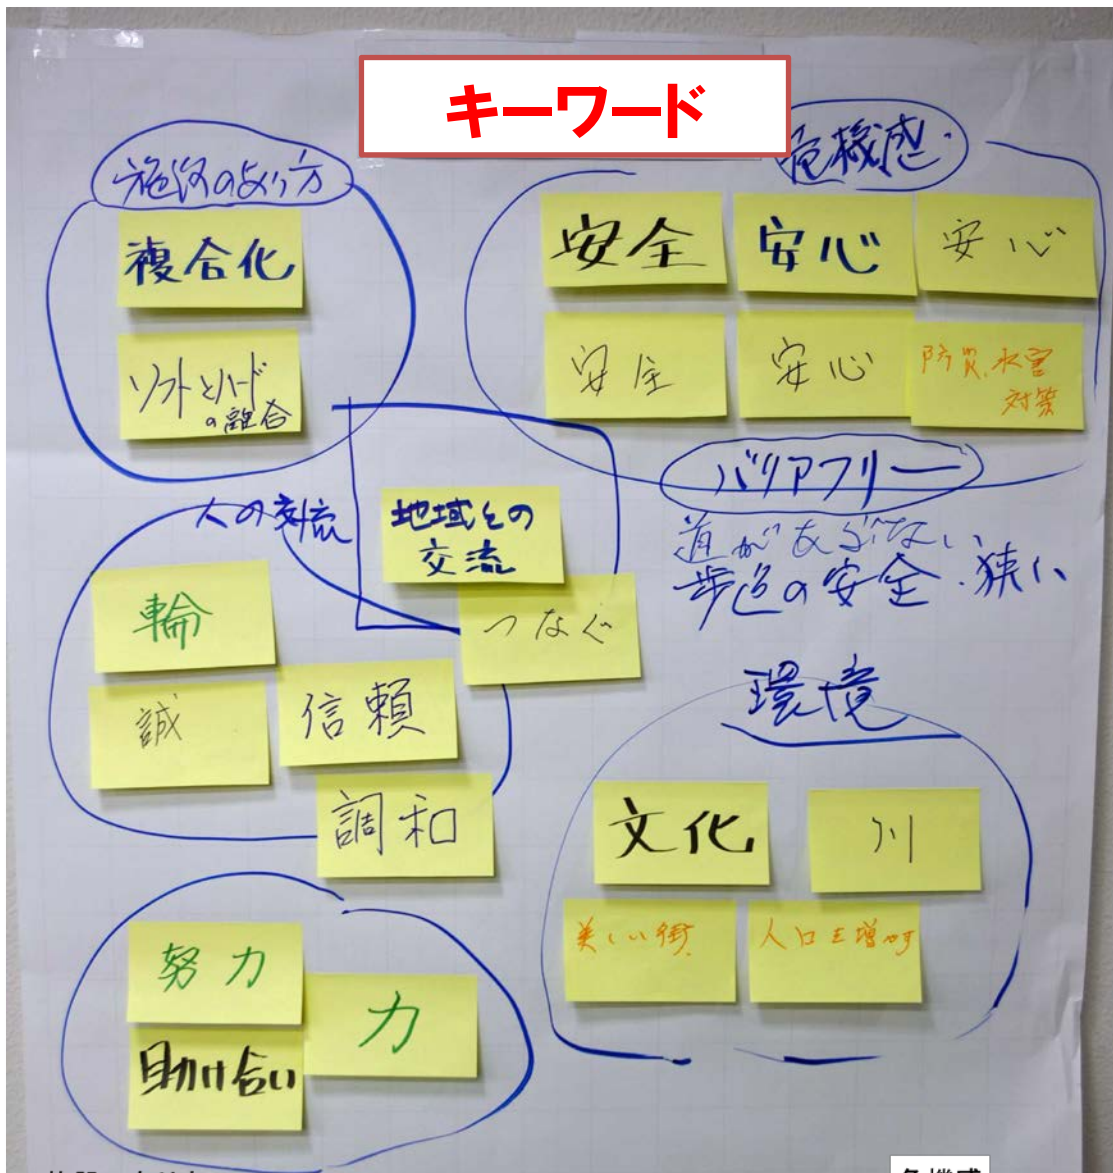 キーワード
施設のあり方
複合化
ソフトとハード
の融合
危機感
安全
安心
安心
安全
安心
防災、水害
対策
バリアフリー
道があぶない
歩道の安全・狭い
人の交流
地域との
交流
つなぐ
輪
誠
信頼
調和
環境
文化
川
美しい街
人口を増やす
努力
力
助け合い